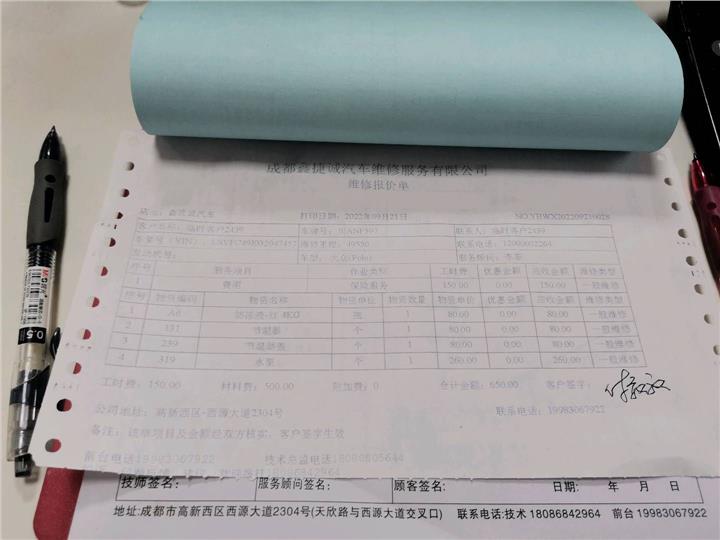 成都鑫捷诚汽车维修服务有限公司
维修报价单
店名：鑫捷诚汽车 打印日期：2022年09月21日
客户名称：临时客户2439 车牌号： 联系人：临时客户2439
车架号（VIN）： 维修里程：49550 联系电话：12000002264
发动机号： 车型：大众(Polo) 服务顾问：李莽
序号 服务项目 作业类别 工时费 优惠金额 应收金额 维修类型
1 费用 保险服务 150.00 0.00 150.00 一般维修
序号 物资编码 物资名称 物资单位 物资数量 物资单价 优惠金额 应收金额 维修类型
1 A6 防冻液-红 4KG 瓶 1 80.00 0.00 80.00 一般维修
2 131 节温器 个 1 80.00 0.00 80.00 一般维修
3 239 个 1 80.00 0.00 80.00 一般维修
4 319 水泵 个 1 260.00 0.00 260.00 一般维修
工时费：150.00 材料费：500.00 附加费：0 合计金额：650.00 客户签字：
公司地址：高新西区-西源大道2304号 联系电话：19983067922
备注：该维项目及金额经双方核实，客户签字生效
前台电话19983067922 技术总监电话18086805644
18086842964
技师签名： 服务顾问签名： 顾客签名： 日期： 年 月 日
地址:成都市高新西区西源大道2304号(天欣路与西源大道交叉口) 联系电话:技术 18086842964 前台 19983067922
M&G
0.5